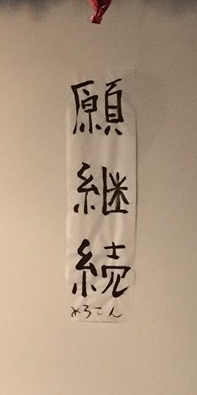 願継続
めろこん